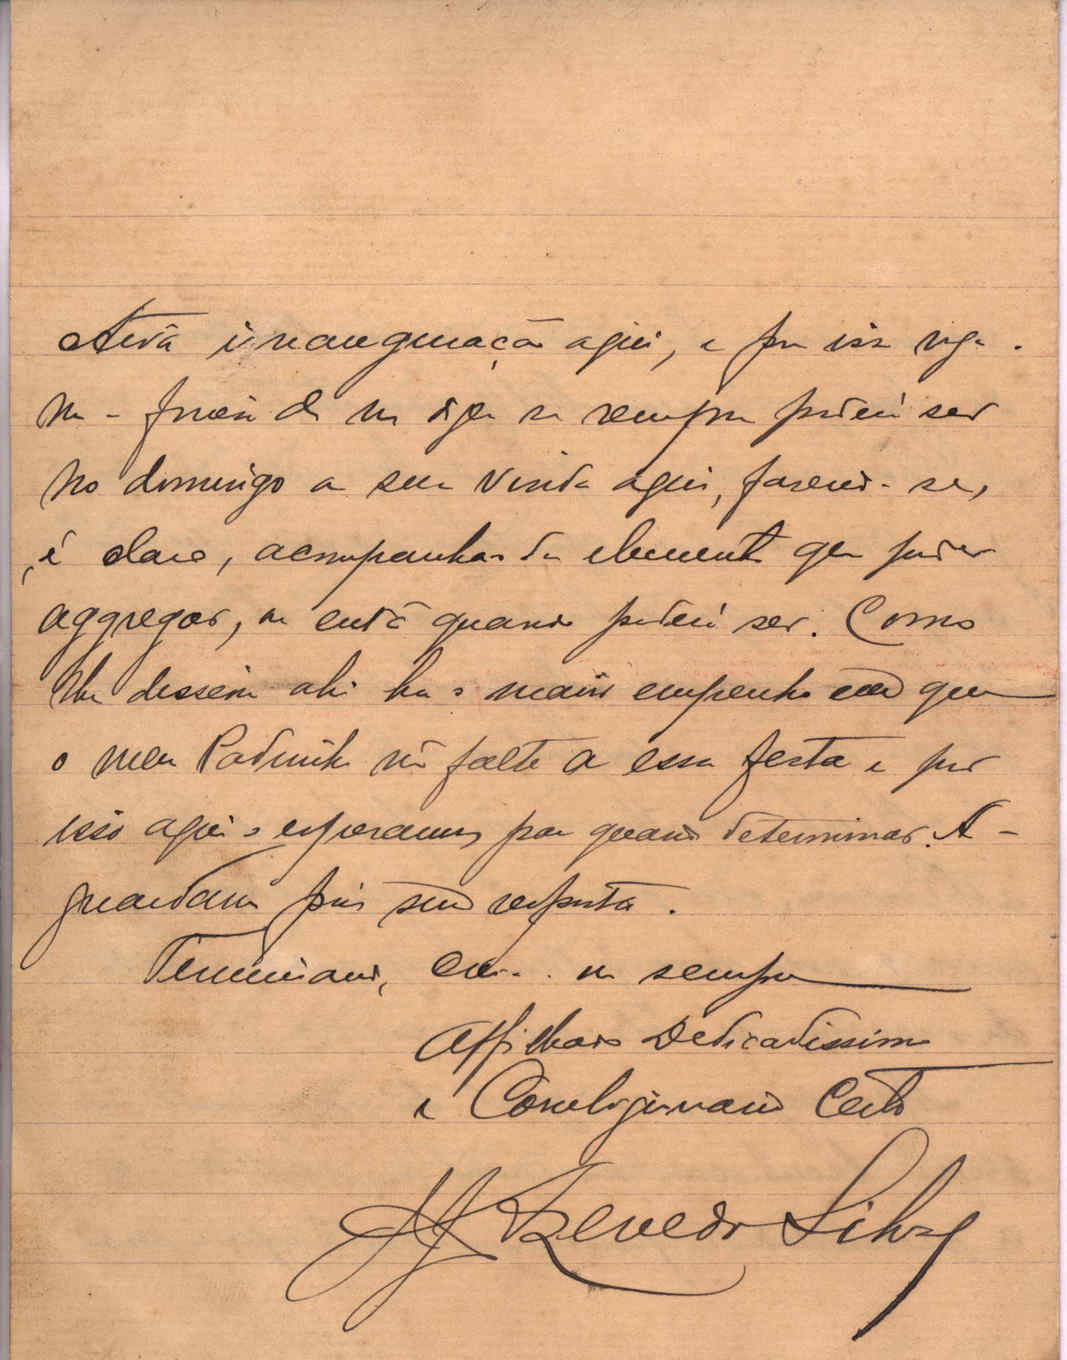 inauguração aqui, e por isso roga-
me
no domingo a sua vinda aqui, fazendo-se,
é claro, acompanhar do elemento que puder
aggregar, ou então quando poderá ser. Como
lhe disse ahi ha o maior empenho em que
o meu Padrinho não falte a essa festa e por
isso aqui o esperamos para quando determinar. A-
guardam pois sua resposta.
Terminando, como sempre
Affilhado Dedicadissimo
e Correligionario Certo
Azevedo Silva